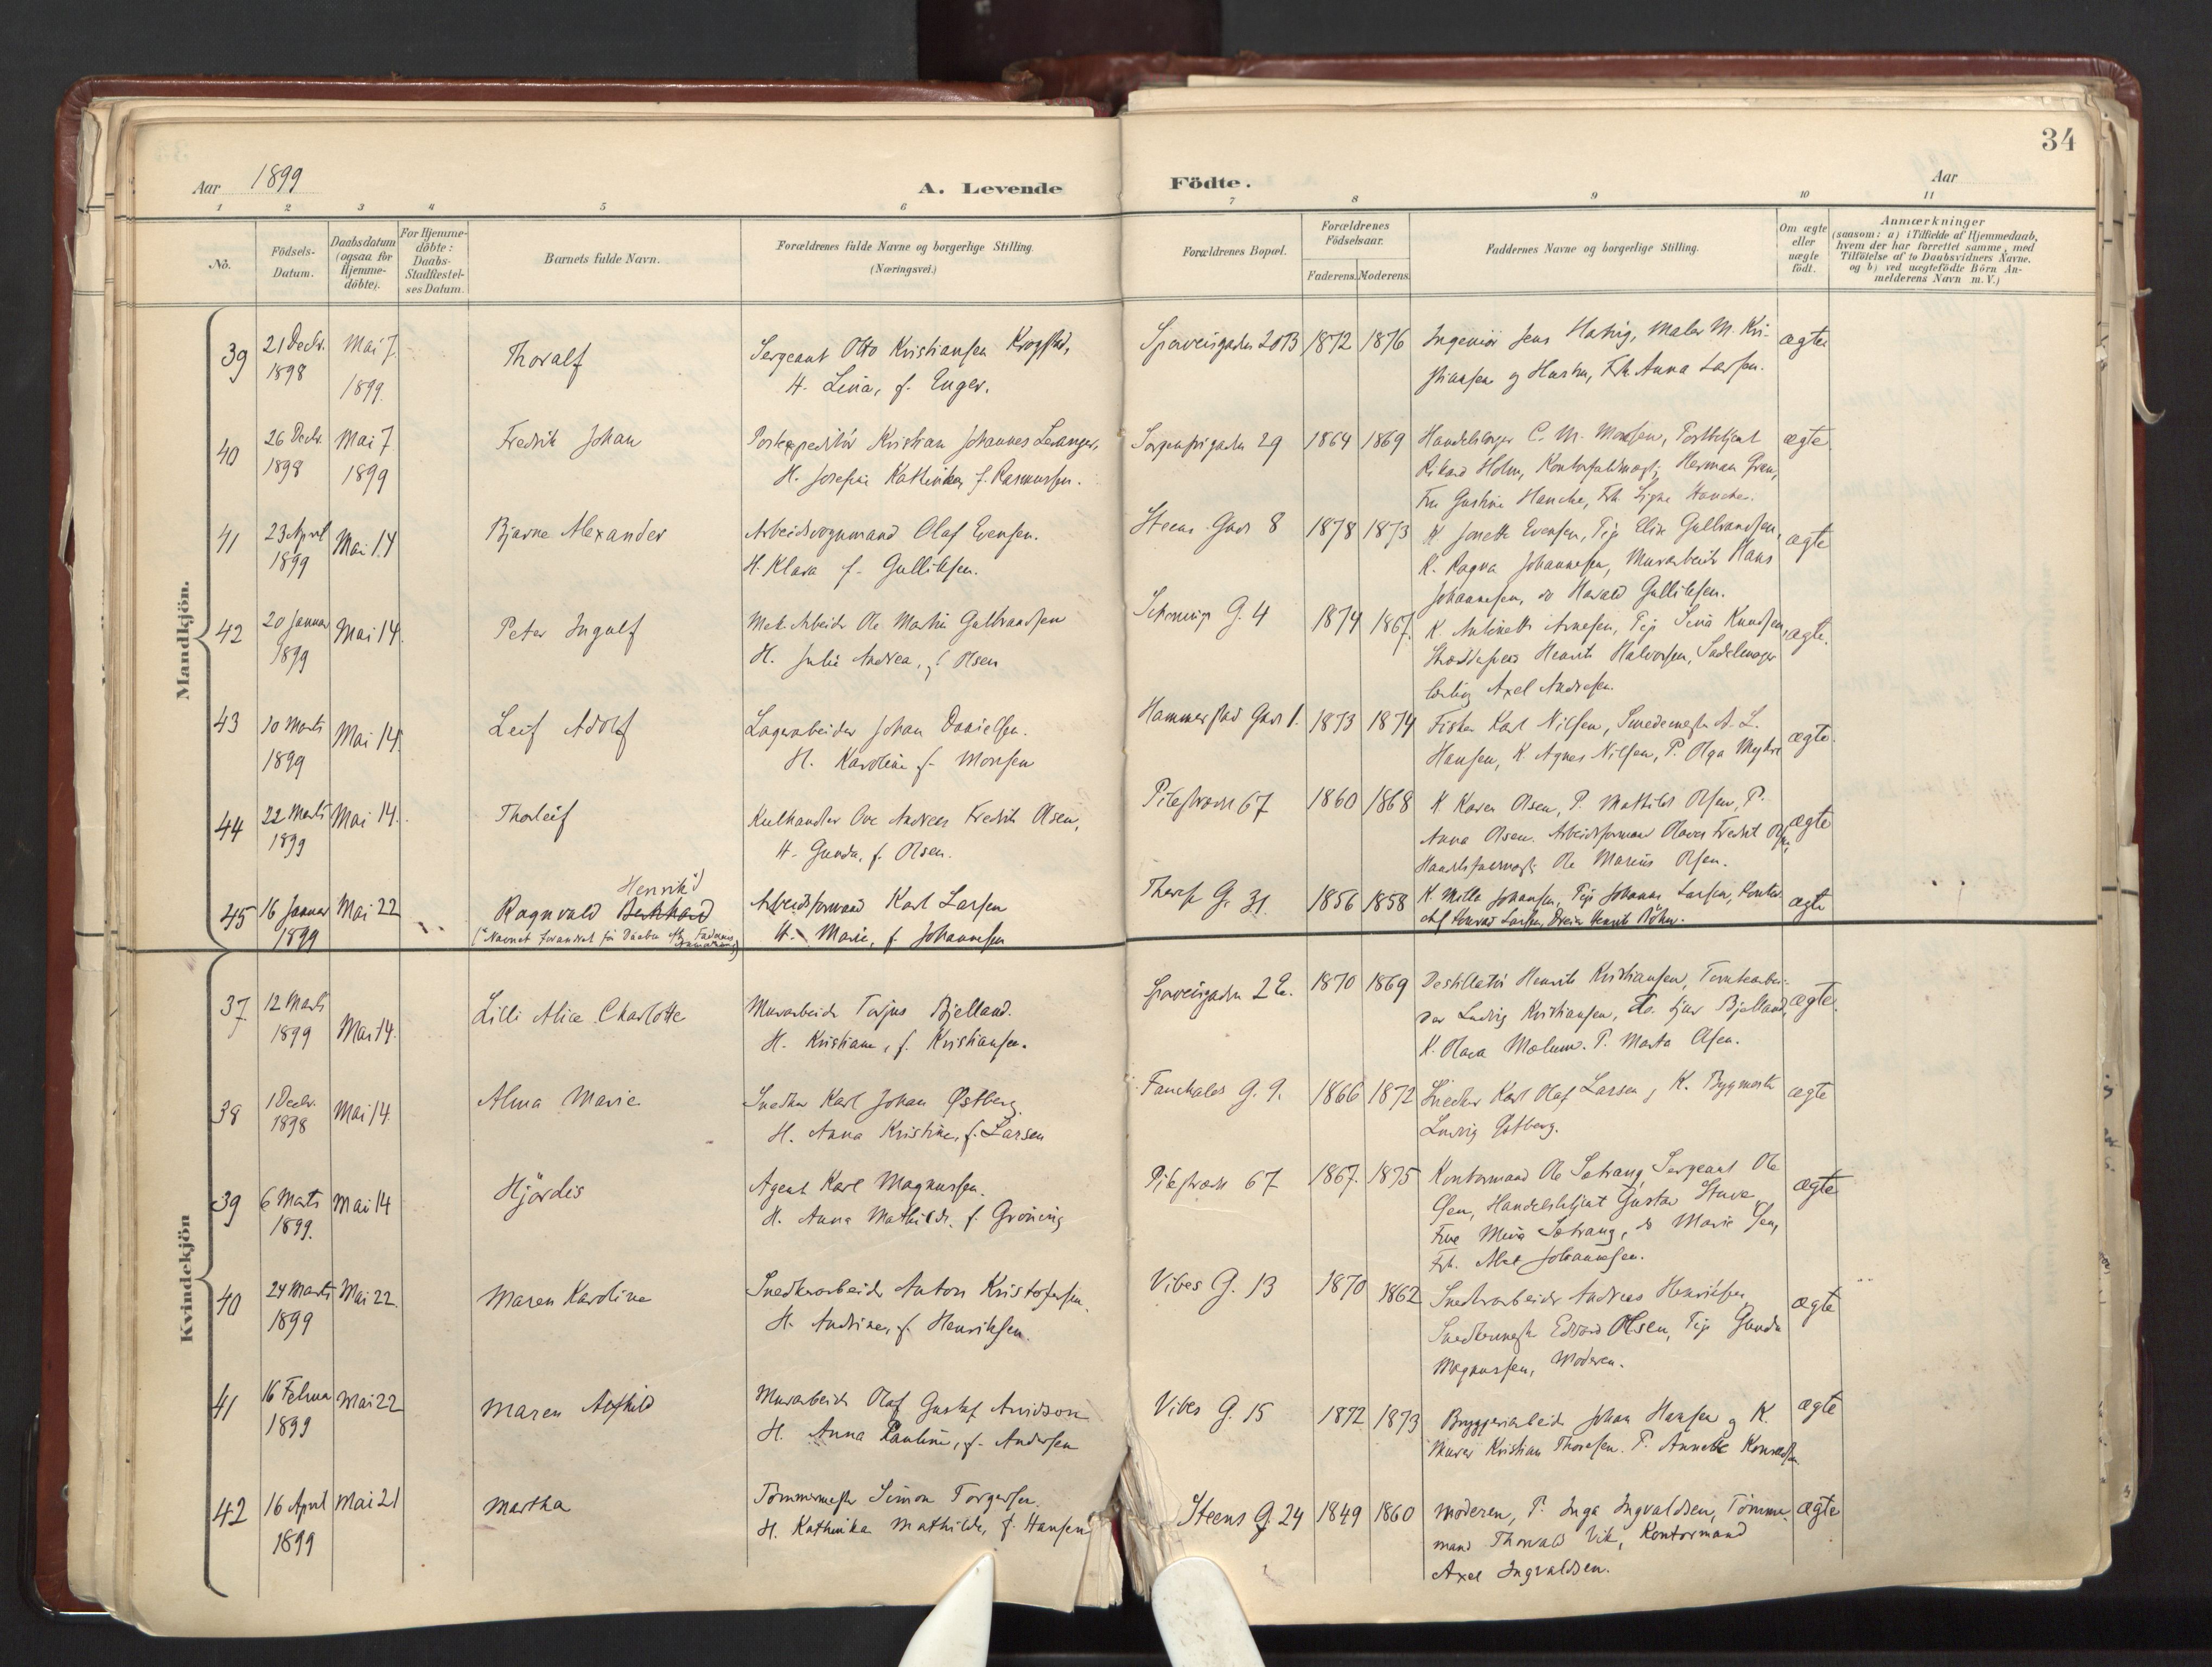 34
Aar 1899
A. Levende
Födte.
Aar
1 2 3 4 5 6 7 8 9 10 11
No.
Födsels-
Datum.
Daabsdatum
(ogsaa for
Hjemme-
döbte).
For Hjemme-
döbte:
Daabs-
Stadfæstel-
ses Datum.
Barnets fulde Navn.
Forældrenes fulde Navne og borgerlige Stilling.
(Næringsvei.)
Forældrenes Bopæl.
Forældrenes
Födselsaar.
Faderens. Moderens.
Faddernes Navne og borgerlige Stilling.
Om ægte
eller
uægte
födt.
Anmærkninger
(saasom: a) i Tilfælde af Hjemmedaab,
hvem der har forrettet samme, med
Tilföielse af to Daabsvidners Navne.
og b) ved uægtefödte Börn An-
melderens Navn m. V.)
Mandkjön.
39
21 Decbr.
1898
Mai 7
1899.
Thoralf
Sergeant Otto Kristiansen Krogstad,
H. Lina, f. Enger.
Sporveisgaden 20B
1872
1876
Ingeniör Jens, Maler M. Kri-
stiansen og Hustru, Frk. Anna Larsen.
ægte
40
26 Decbr.
1898
Mai 7
1899
Fredrik Johan
Postexpeditör Kristian Johannes Levanger,
H. Josefine Kathinka, f. Rasmussen.
Sorgenfrigaden 29
1864
1869
Handelsborger C. M. Monsen, Postbetjent
Rikard Holm, Kontorfuldmægt. Herman Gran,
Fru Gustine Hanche, Frk. Signe Hanche.
ægte.
41
23 April
1899
Mai 14
Bjarne Alexander
Arbeidsvognmand Olaf Evensen.
H. Klara f. Gulliksen.
Steens Gade 8
1878
1873
K. Josette Evensen, Pige Elise Gulbrandsen,
K. Ragna Johannesen, Murarbeider Hans
Johannesen, do Harald Gulliksen.
ægte
42
20 Januar
1899
Mai 14.
Peter Ingolf
Mek. Arbeider Ole Martin Gulbrandsen
H. Julie Andrea, f. Olsen
Schønings G. 4
1874
1867.
K. Antinette Arnesen, Pige Lina Knudsen,
Henrik Halvorsen, Sadelmager
lærling Axel Andresen.
ægte.
43
10 Marts
1899
Mai 14
Leif Adolf
Lagerarbeider Johan Danielsen.
H. Karoline f. Monsen
Hammerstad Gade 1.
1873
1874
Fisker Karl Nilsen, Smedemester A. L.
Hansen, K. Agnes Nilsen, P. Olga
ægte.
44
22 Marts
1899
Mai 14.
Thorleif
Kulhandler Ove Andreas Fredrik Olsen,
H. Gunda, f. Olsen.
Pilestræde 67
1860
1868
K. Karen Olsen, P. Mathilde Olsen, P.
Anna Olsen. Arbeidsformand Olaves Fredrik Olsen,
Handelsfuldmægt. Ole Marius Olsen.
ægte
45
16 Januar
1899
Mai 22
Henrik
Ragnvald
(Navnet forandret før Daaben efter Faderens
Arbeidsformand Karl Larsen
H. Marie, f. Johannesen
Theres G. 31.
1856
1858
K. Milla Johansen, Pige Johanne Larsen, Kontor-
chef Konrad Larsen, Henrik
ægte
Kvindekjön
37
12 Marts
1899
Mai 14.
Lilli Alice Charlotte
Murarbeider Torjus Bjelland.
H. Kristiane, f. Kristiansen.
Sporveisgaden 2 C.
1870
1869
Destillatör Henrik Kristiansen, Tomtearbei-
der Ludvig Kristiansen, do. Bjelland,
K. Olava Mælum. P. Marta Olsen.
ægte.
38
1 Decbr.
1898
Mai 14.
Alma Marie
Snedker Karl Johan Østberg.
H. Anna Kristine, f. Larsen
Fauchalds G. 9.
1866
1872
Snedker Karl Olaf Larsen, K. Bygmester
Ludvig Østberg.
ægte
39
6 Marts
1899.
Mai 14
Hjördis
Agent Karl Magnussen.
H. Anna Mathilde, f. Gröning
Pilestræde 67
1867.
1875
Kontormand Ole Sætrang, Sergeant Ole
Handelsbetjent Gustav
Frue Mina Sætrang, do Marie
Frk. Johannesen.
ægte
40
24 Marts
1899
Mai 22.
Maren Karoline
Snedkerarbeider Anton Kristofersen.
H. Andrine, f. Henriksen.
Vibes G. 13
1870
1862
Snedkerarbeider Andreas Henriksen,
Snedkermester Edvard Olsen, Pige Gunda
Magnussen, Moderen.
ægte
41
16 Februar
1899
Mai 22
Maren
Murarbeider Olaf Gustaf Arvidson
H. Anna Pauline, f. Andersen
Vibes G. 15
1872
1873
Bryggeriarbeider Johan Hansen og K.
Murer Kristian Thoresen. P. Annette
ægte
42
16 April
1899
Mai 21
Martha
Tömmermester Simon Torgersen.
H. Kathinka Mathilde, f. Hansen
Steens G. 24
1849
1860
Moderen, P. Inga Ingvaldsen, Tömmer-
mand Thorvald Vik, Kontormand
Axel Ingvaldsen.
ægte